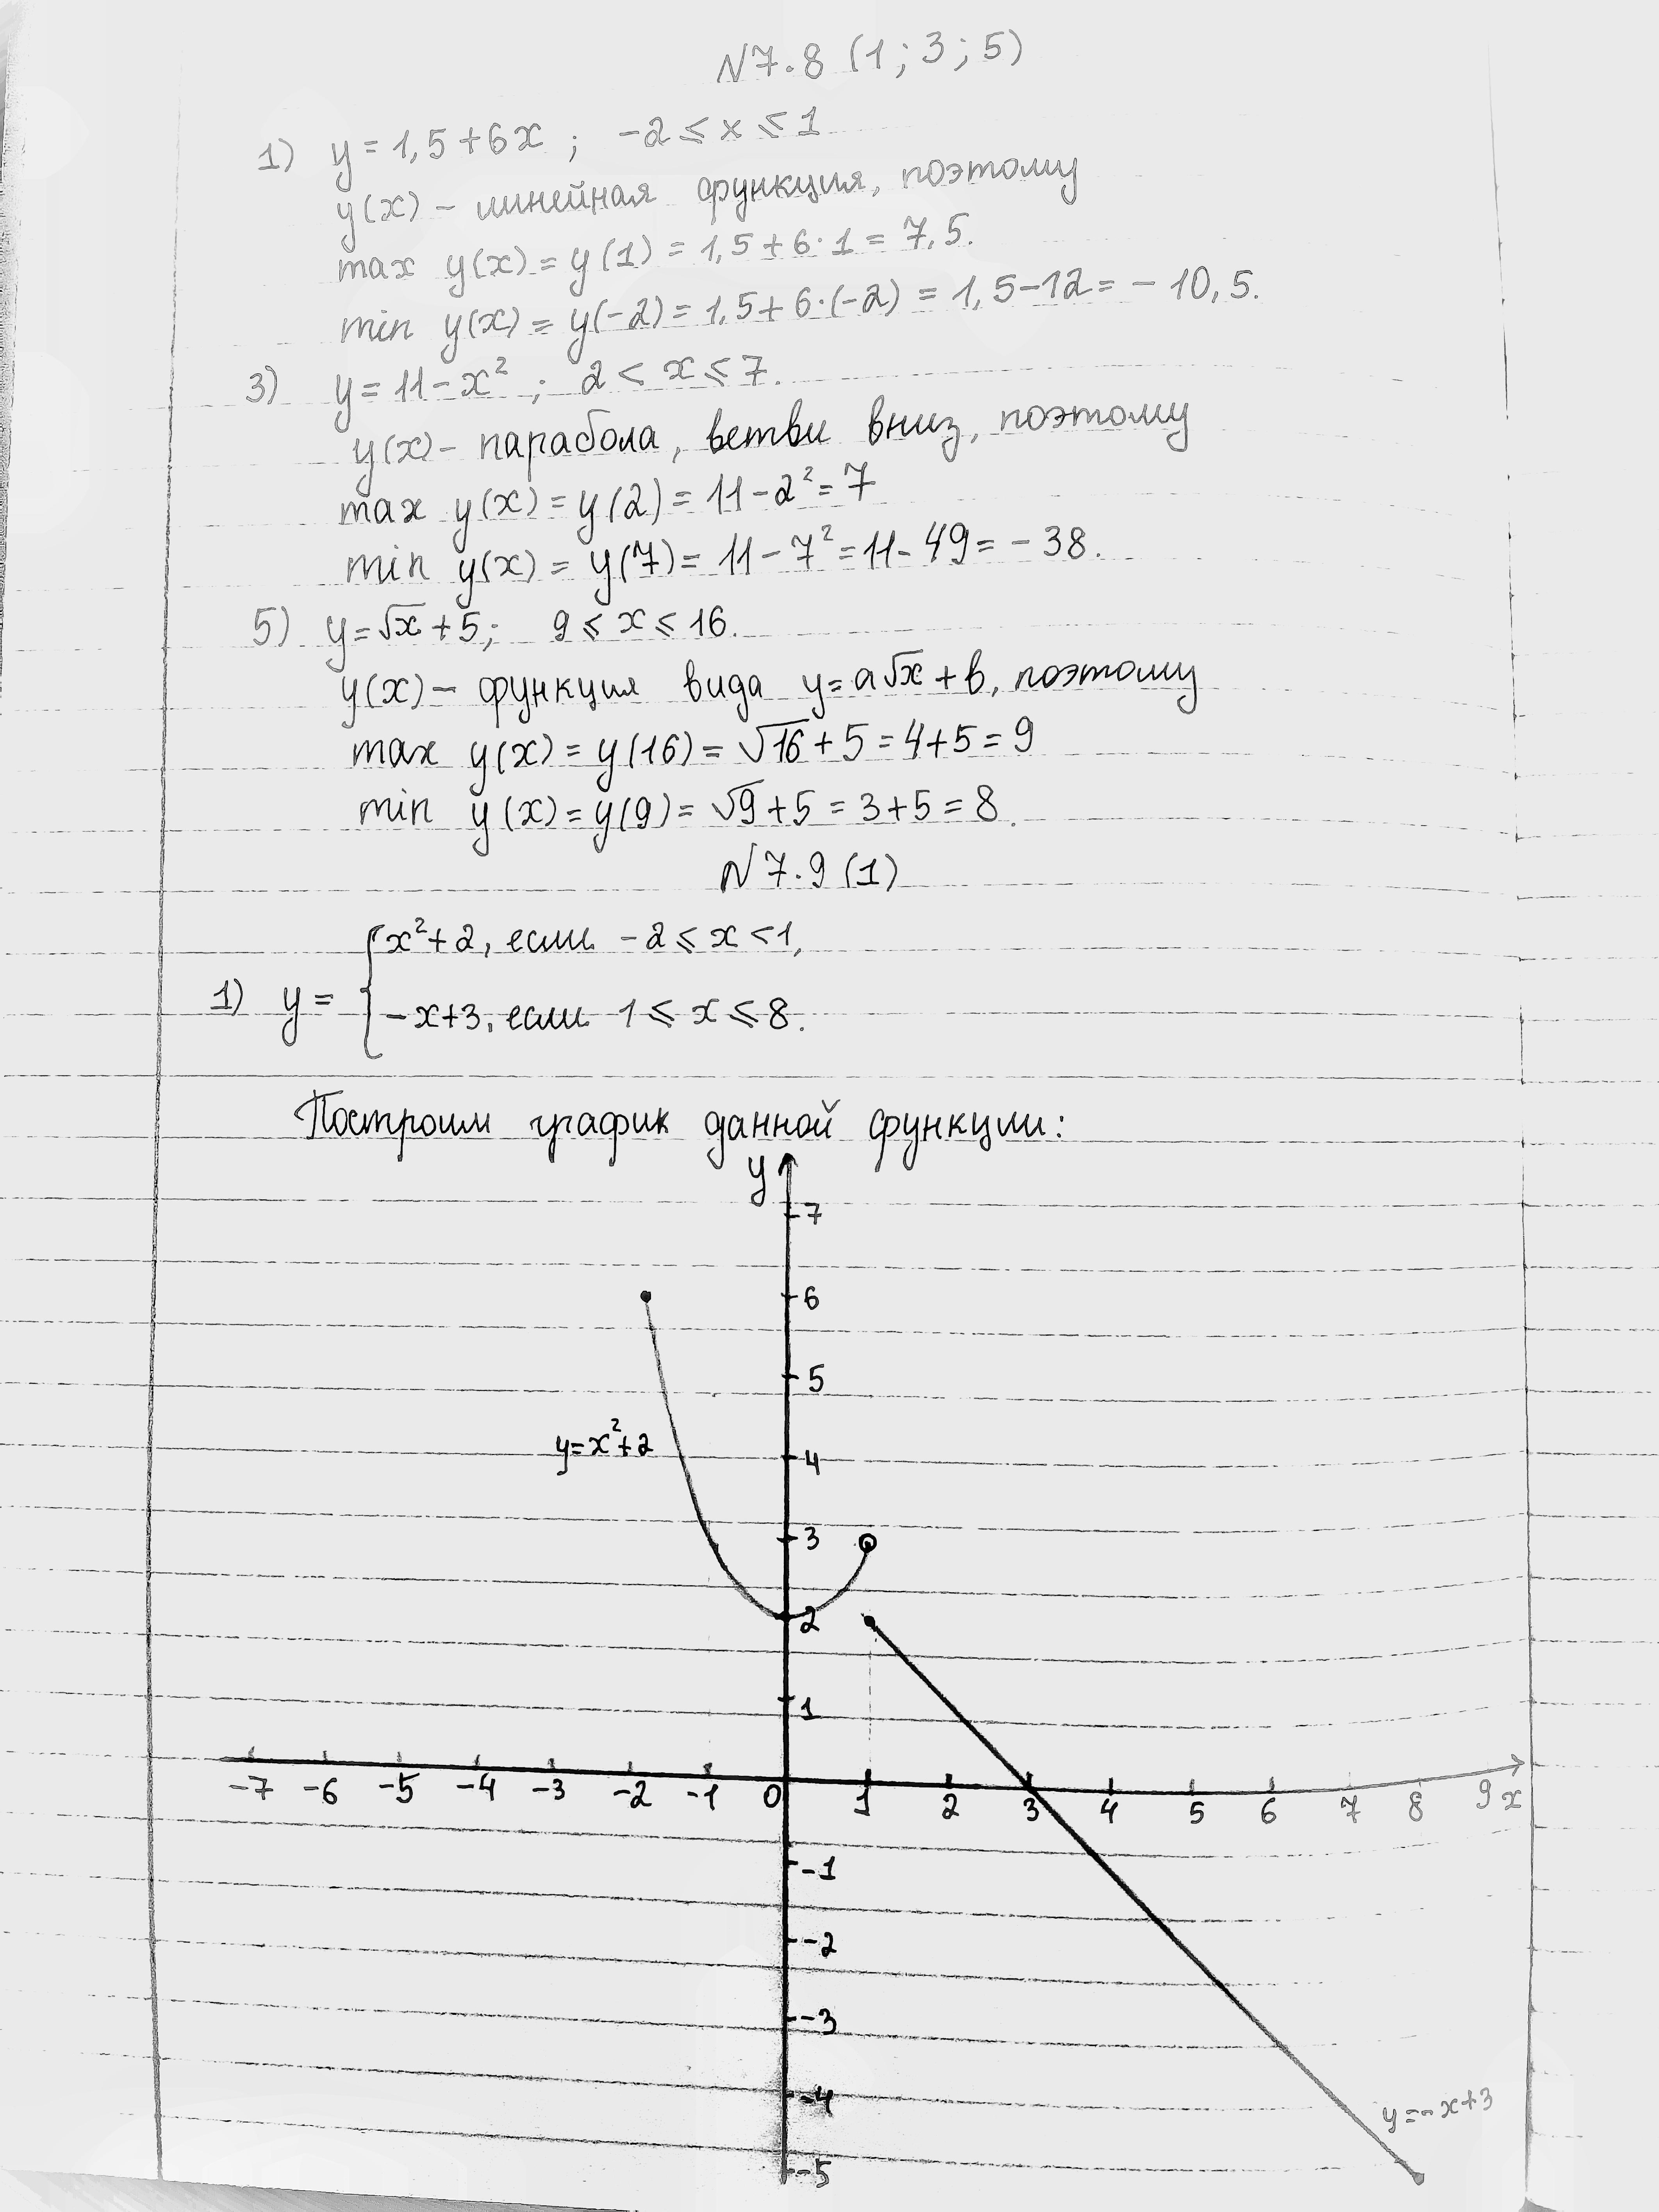 N7.8 (1; 3; 5)
1) y = 1,5 + 6x ; -2 ⩽ x ⩽ 1
y(x) – линейная функция, поэтому
max y(x) = y(1) = 1,5 + 6·1 = 7,5.
min y(x) = y(-2) = 1,5 + 6·(-2) = 1,5-12 = -10,5.
3) y = 11 - x² ; 2 < x ⩽ 7.
y(x) – парабола, ветви вниз, поэтому
max y(x) = y(2) = 11 - 2² = 7
min y(x) = y(7) = 11 - 7² = 11 - 49 = -38.
5) y = √x + 5; 9 ⩽ x ⩽ 16.
y(x) – функция вида y = a√x + b, поэтому
max y(x) = y(16) = √16 + 5 = 4+5 = 9
min y(x) = y(9) = √9 + 5 = 3+5 = 8.
N7.9 (1)
x²+2, если -2 ⩽ x < 1,
1) y = {
-x+3, если 1 ⩽ x ⩽ 8.
Построим график данной функции:
y
7
6
5
y=x²+2
4
3
2
1
-7 -6 -5 -4 -3 -2 -1 0 1 2 3 4 5 6 7 8 9 x
-1
-2
-3
-4
y=-x+3
-5